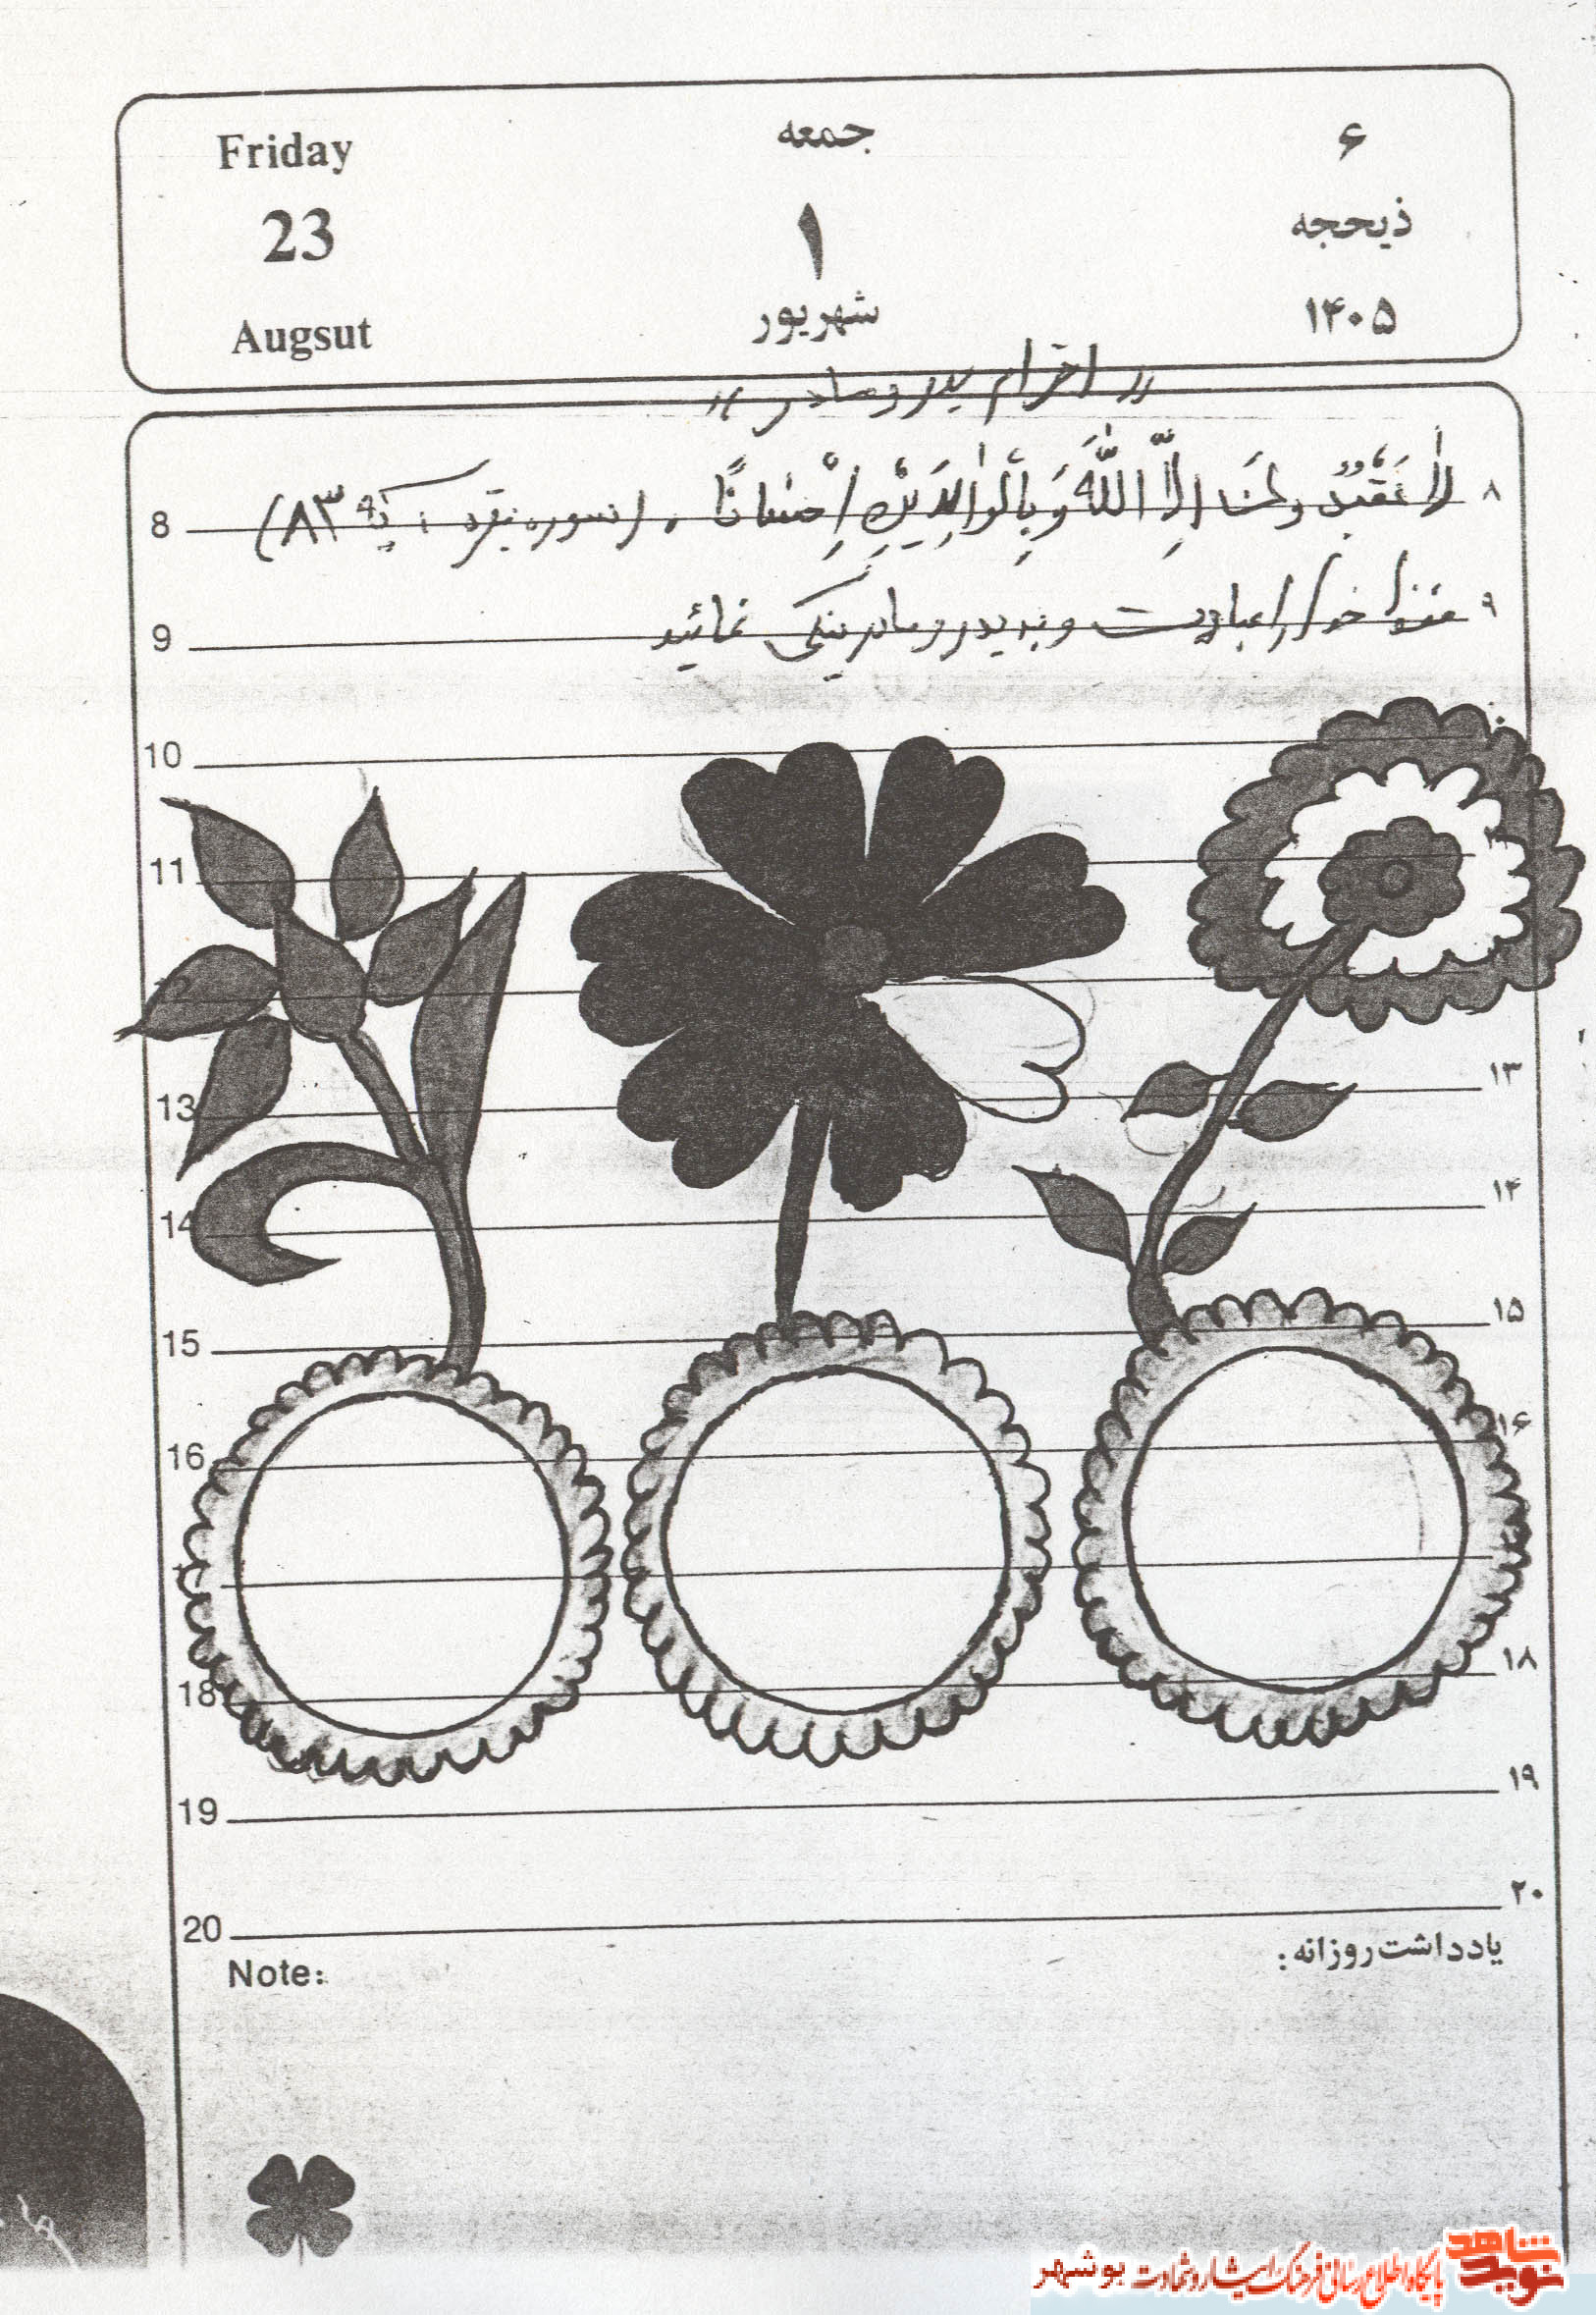 Friday جمعه ۶
23 ۱ ذیحجه
Augsut شهریور ۱۴۰۵
« احترام پدر و مادر »
8 لا تَعْبُدُونَ اِلاَّ اللَّهَ وَ بِالْوالِدَيْنِ اِحْساناً . (سوره بقره آیه ۸۳) ۸
9 فقط خدا را عبادت و به پدر و مادر نیکی نمائید ۹
10
11
13 ۱۳
14 ۱۴
15 ۱۵
16 ۱۶
18 ۱۸
19 ۱۹
20 ۲۰
Note: یادداشت روزانه:
نوید شاهد پایگاه اطلاع رسانی فرهنگ ایثار و شهادت بوشهر